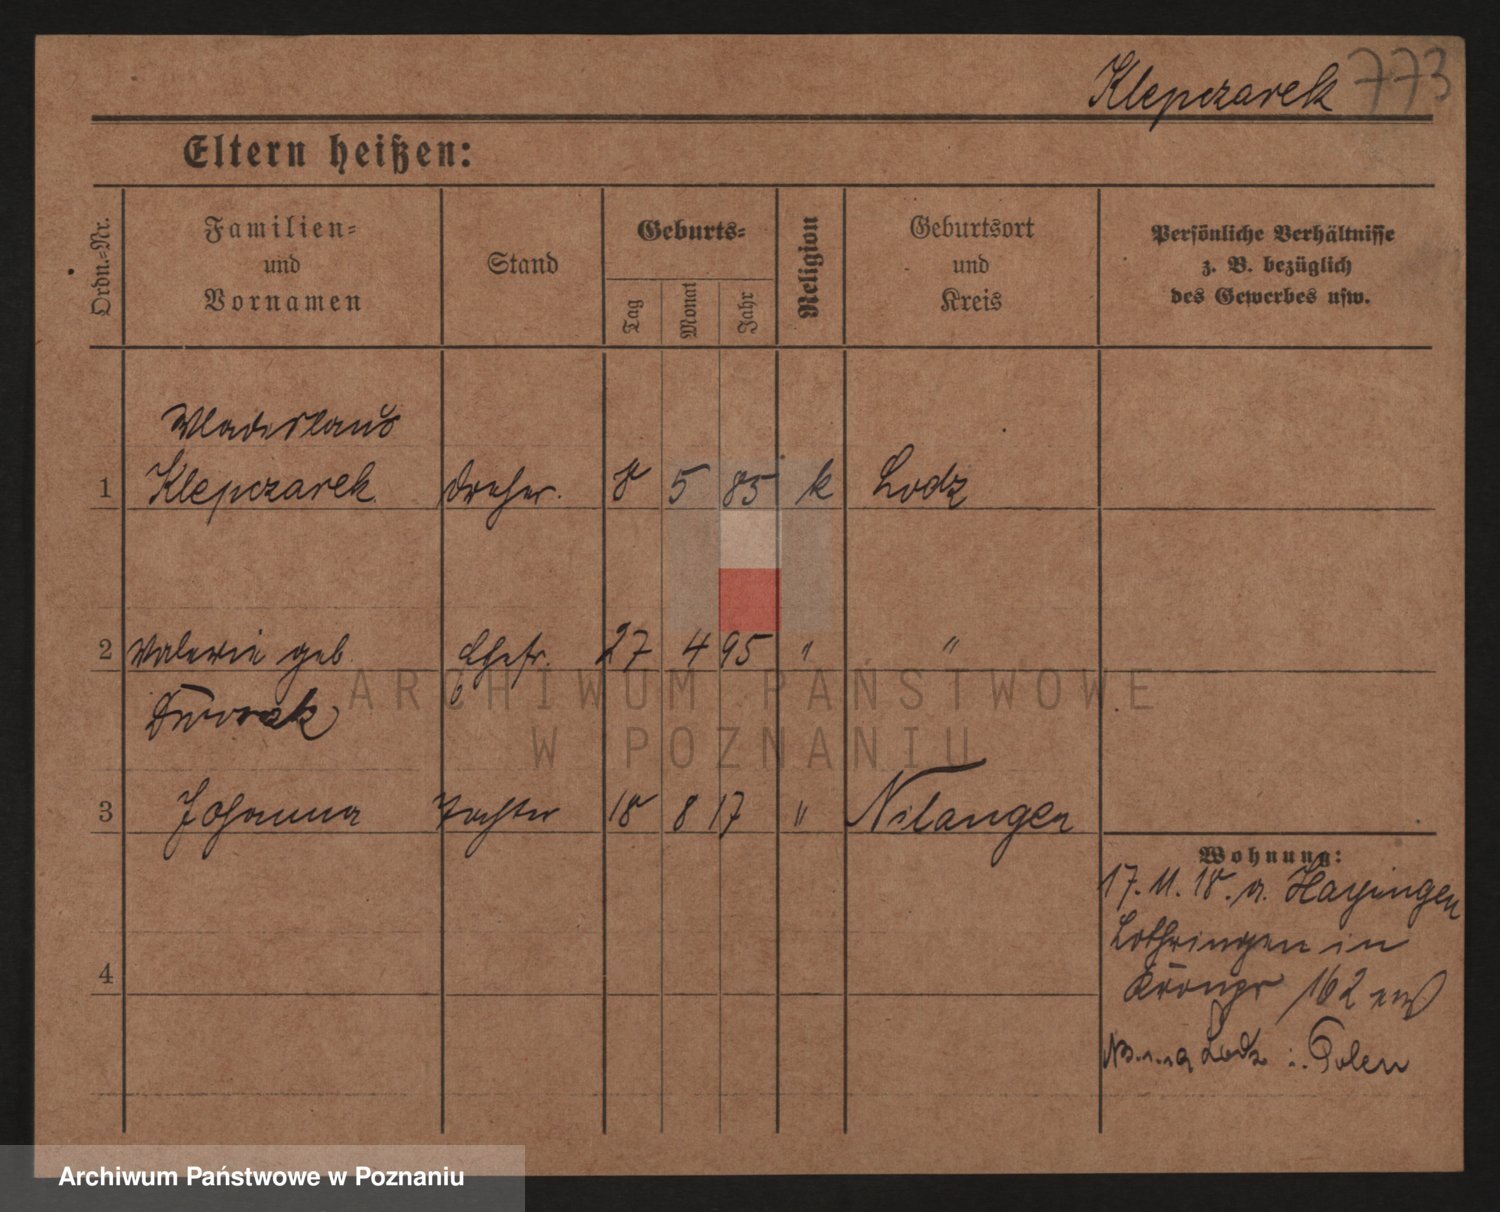 Klepczarek 773
Eltern heißen:
Ordn.=Nr.
Familien=
und
Vornamen
Stand
Geburts=
Tag
Monat
Jahr
Religion
Geburtsort
und
Kreis
Persönliche Verhältnisse
z. B. bezüglich
des Gewerbes usw.
Wladislaus
1 Klepczarek Dreher. 8 5 85 k Lodz
2 Valerie geb. Ehefr. 27 4 95 " "
Dworak
3 Johanna Tochter 18 8 17 " Nilangen
Wohnung:
17. 11. 18. a. Hayingen
Lothringen in
162
4
Lodz Polen
ARCHIWUM PAŃSTWOWE
W POZNANIU
Archiwum Państwowe w Poznaniu